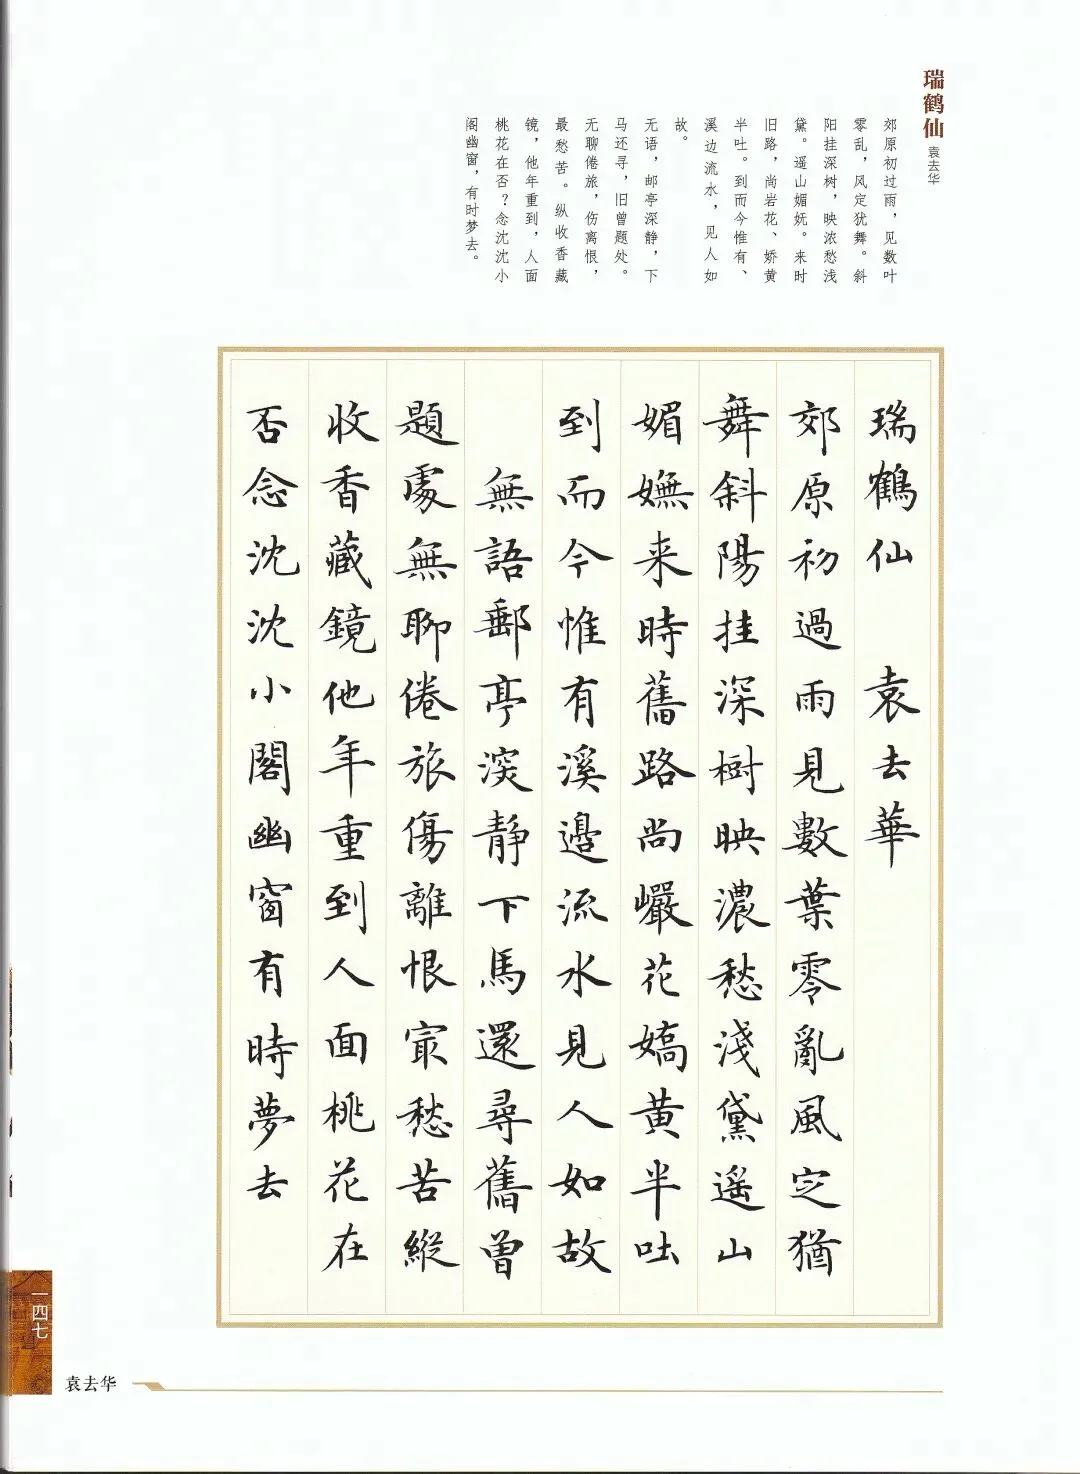 瑞鹤仙
袁去华
郊原初过雨，见数叶
零乱，风定犹舞。斜
阳挂深树，映浓愁浅
黛。遥山媚妩。来时
旧路，尚岩花、娇黄
半吐。到而今惟有、
溪边流水，见人如
故。
无语，邮亭深静，下
马还寻，旧曾题处。
无聊倦旅，伤离恨，
最愁苦。纵收香藏
镜，他年重到，人面
桃花在否？念沈沈小
阁幽窗，有时梦去。
瑞鶴仙 袁去華
郊原初過雨見數葉零亂風定猶
舞斜陽挂深樹映濃愁淺黛遥山
媚嫵来時舊路尚巖花嬌黄半吐
到而今惟有溪邊流水見人如故
無語郵亭深静下馬還尋舊曾
題處無聊倦旅傷離恨冣愁苦縱
收香藏鏡他年重到人面桃花在
否念沈沈小閣幽窗有時夢去
一四七
袁去华